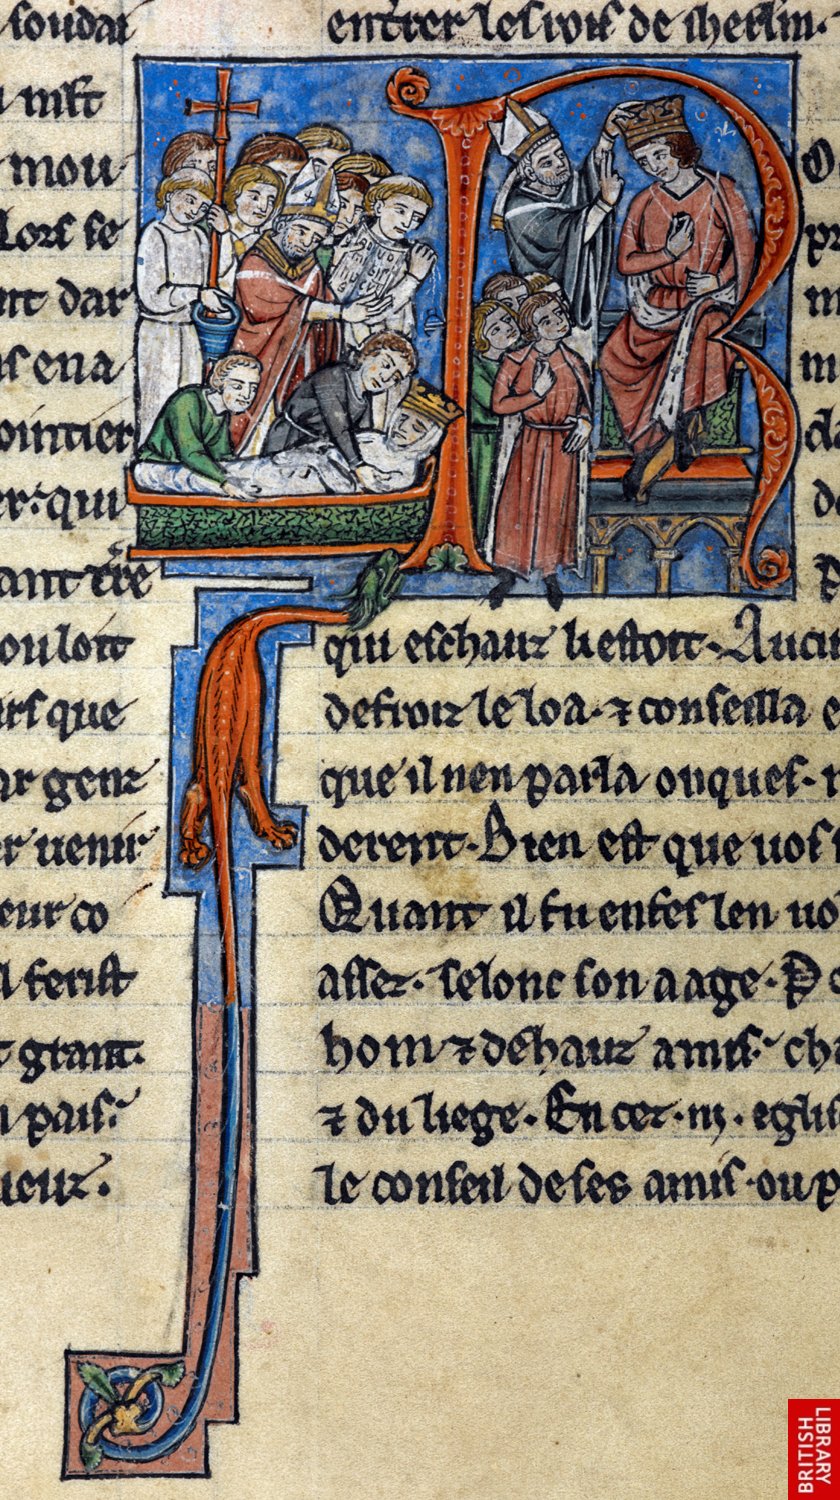 soudai
mſt
mou
lorſ ſe
nt dar
ſ en a
ointier
er. qui
ant tr̄e
ou loit
urſ que
ar genz
er uenir
eur co
ferist
grant.
paiſ.
ieuz.
entrer leſ roiſ de iherlm.
R
qui eſchauz li eſtoit. Aucu
deſ ſwiz le loa. ⁊ conſeilla e
que il nen parla onqueſ.
derent. Bien eſt que uoſ
Quant il fu enfeſ len uo
aſſez. ſelonc ſon aage. P
hom ⁊ de hauz amiſ. cha
⁊ du liege. En cez .iij. egliſ
le conſeil de ſeſ amiſ. ou p
BRITISH
LIBRARY